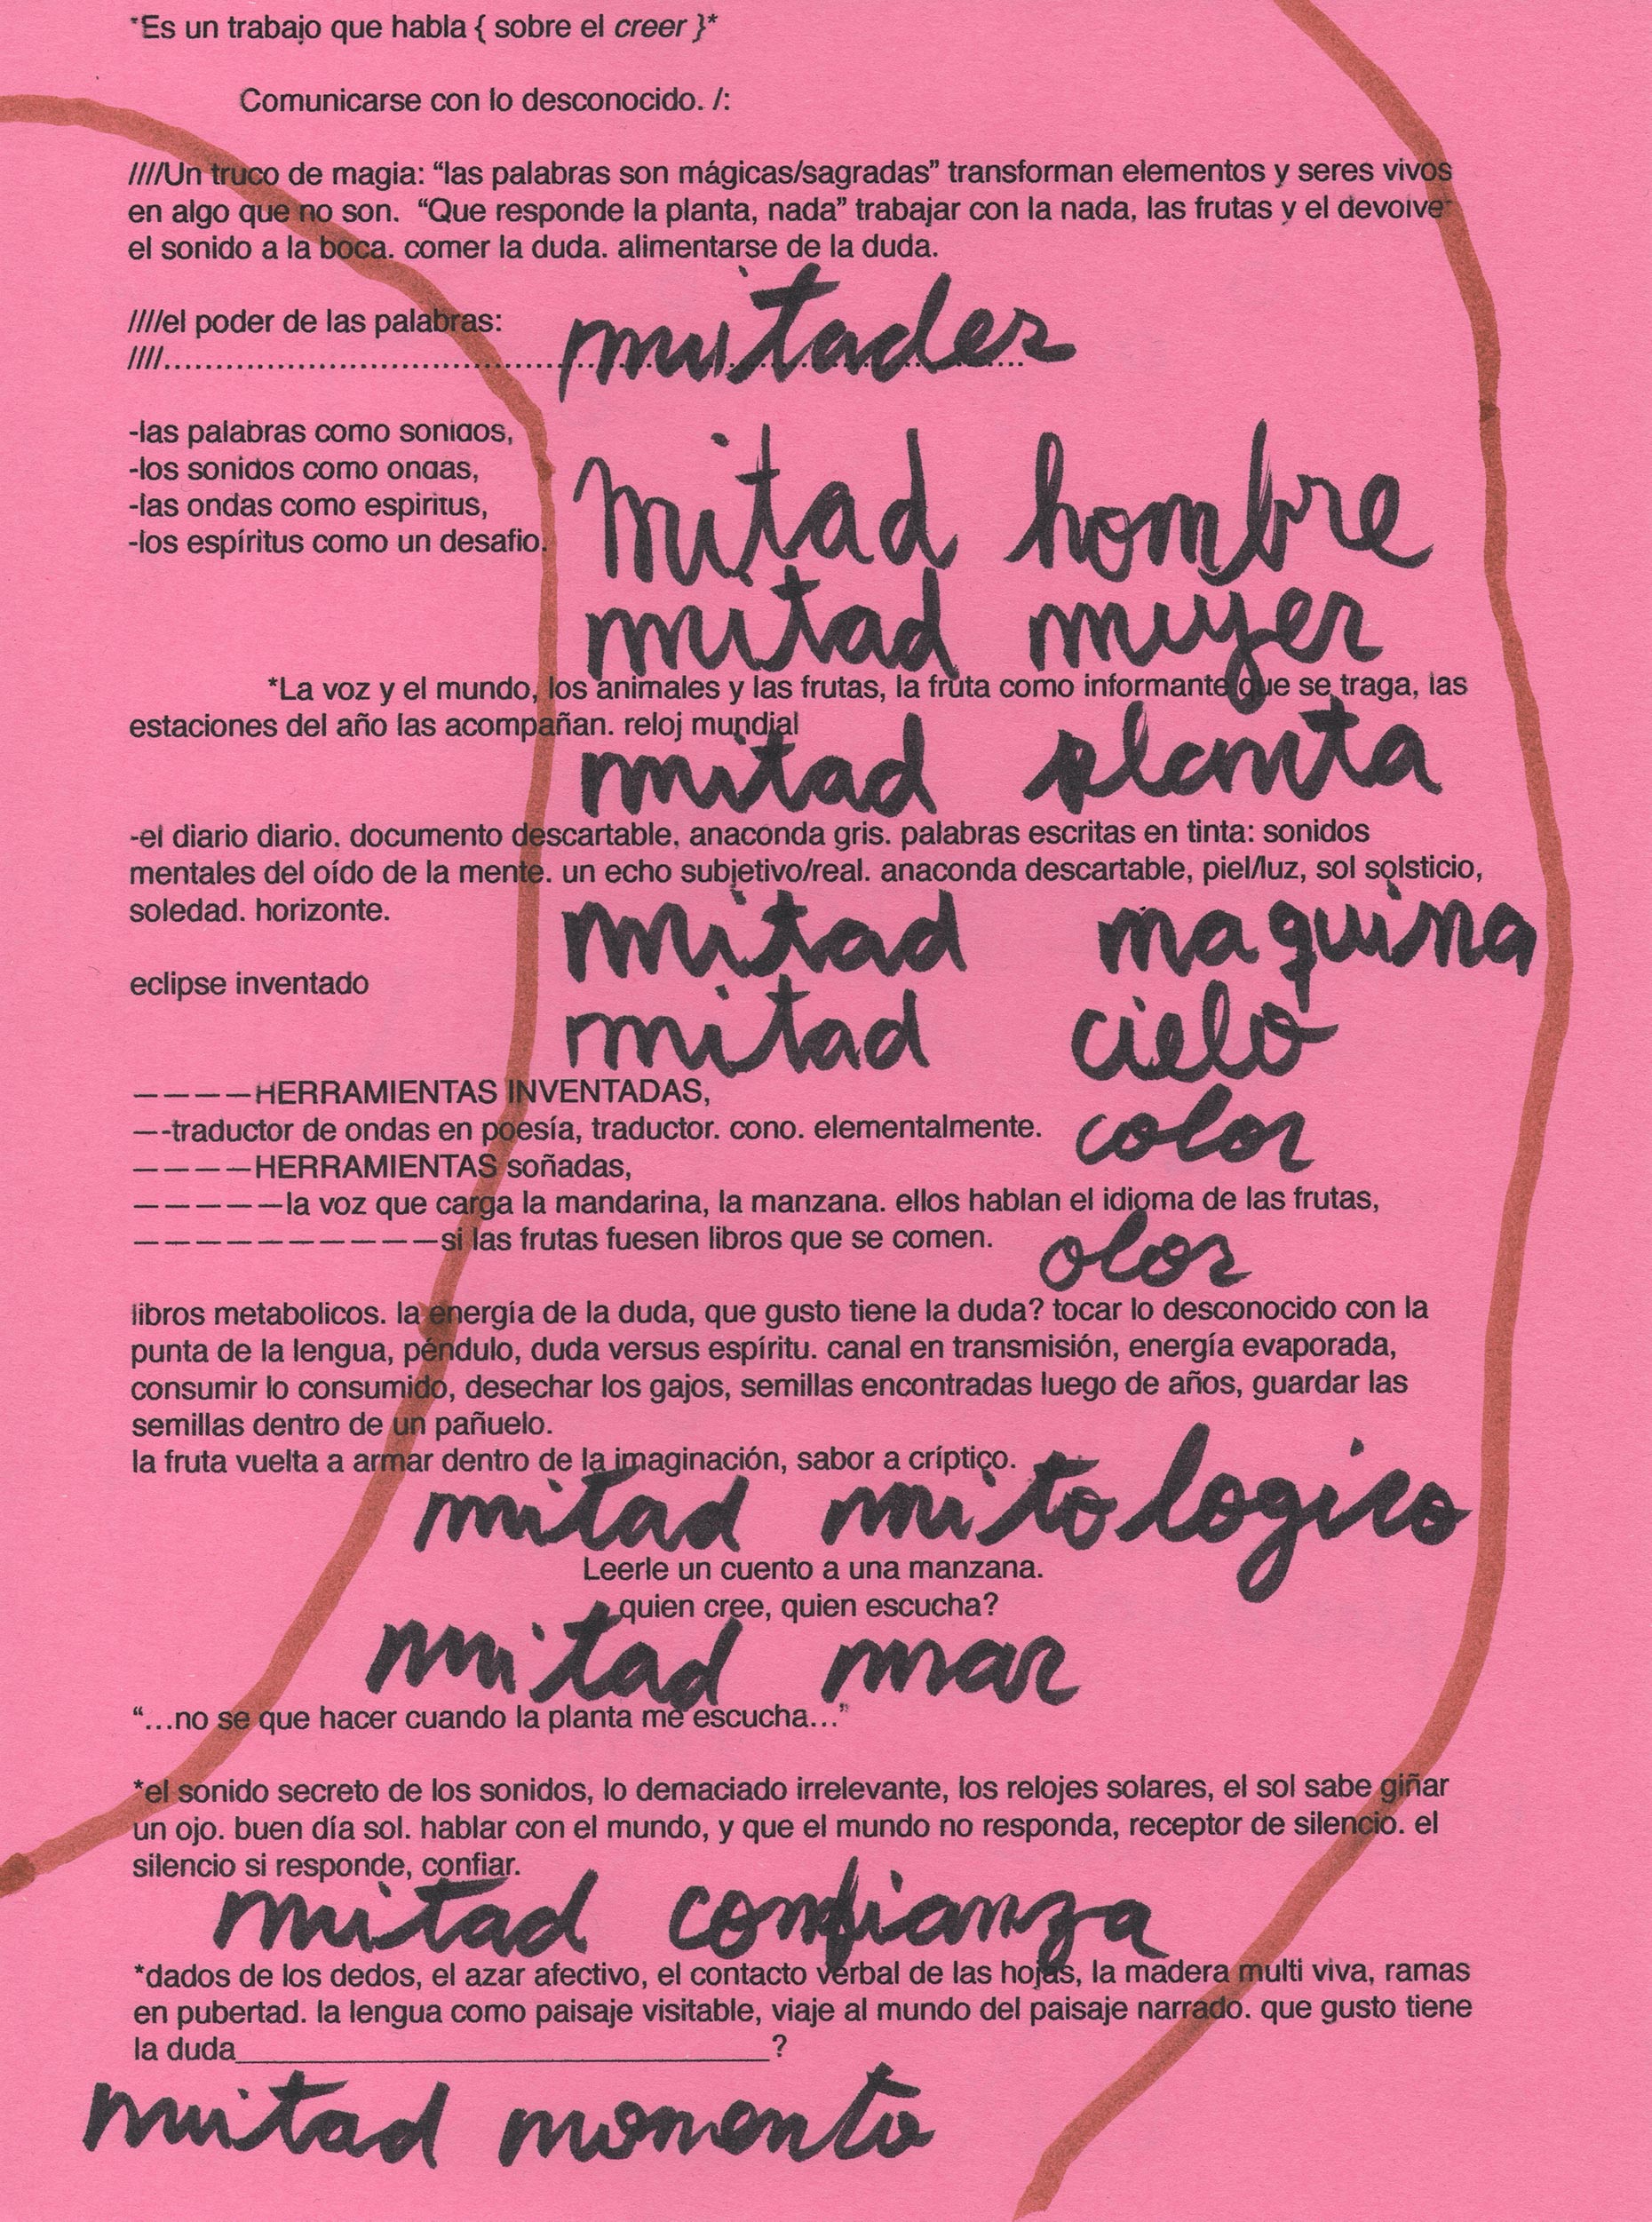 *Es un trabajo que habla { sobre el creer }*
Comunicarse con lo desconocido. /:
////Un truco de magia: “las palabras son mágicas/sagradas” transforman elementos y seres vivos
en algo que no son. “Que responde la planta, nada” trabajar con la nada, las frutas y el devolver
el sonido a la boca. comer la duda. alimentarse de la duda.
////el poder de las palabras:
////........................................................................................
mitades
-las palabras como sonidos,
-los sonidos como ondas,
-las ondas como espiritus,
-los espíritus como un desafio.
mitad hombre
mitad mujer
*La voz y el mundo, los animales y las frutas, la fruta como informante que se traga, las
estaciones del año las acompañan. reloj mundial
mitad planta
-el diario diario. documento descartable, anaconda gris. palabras escritas en tinta: sonidos
mentales del oído de la mente. un echo subjetivo/real. anaconda descartable, piel/luz, sol solsticio,
soledad. horizonte.
mitad maquina
eclipse inventado
mitad cielo
————HERRAMIENTAS INVENTADAS,
—-traductor de ondas en poesía, traductor. cono. elementalmente.
color
————HERRAMIENTAS soñadas,
—————la voz que carga la mandarina, la manzana. ellos hablan el idioma de las frutas,
——————————si las frutas fuesen libros que se comen.
olor
libros metabolicos. la energía de la duda, que gusto tiene la duda? tocar lo desconocido con la
punta de la lengua, péndulo, duda versus espíritu. canal en transmisión, energía evaporada,
consumir lo consumido, desechar los gajos, semillas encontradas luego de años, guardar las
semillas dentro de un pañuelo.
la fruta vuelta a armar dentro de la imaginación, sabor a críptico.
mitad mitologico
Leerle un cuento a una manzana.
quien cree, quien escucha?
mitad mar
“...no se que hacer cuando la planta me escucha...”
*el sonido secreto de los sonidos, lo demaciado irrelevante, los relojes solares, el sol sabe giñar
un ojo. buen día sol. hablar con el mundo, y que el mundo no responda, receptor de silencio. el
silencio si responde, confiar.
mitad confianza
*dados de los dedos, el azar afectivo, el contacto verbal de las hojas, la madera multi viva, ramas
en pubertad. la lengua como paisaje visitable, viaje al mundo del paisaje narrado. que gusto tiene
la duda________________________________?
mitad momento